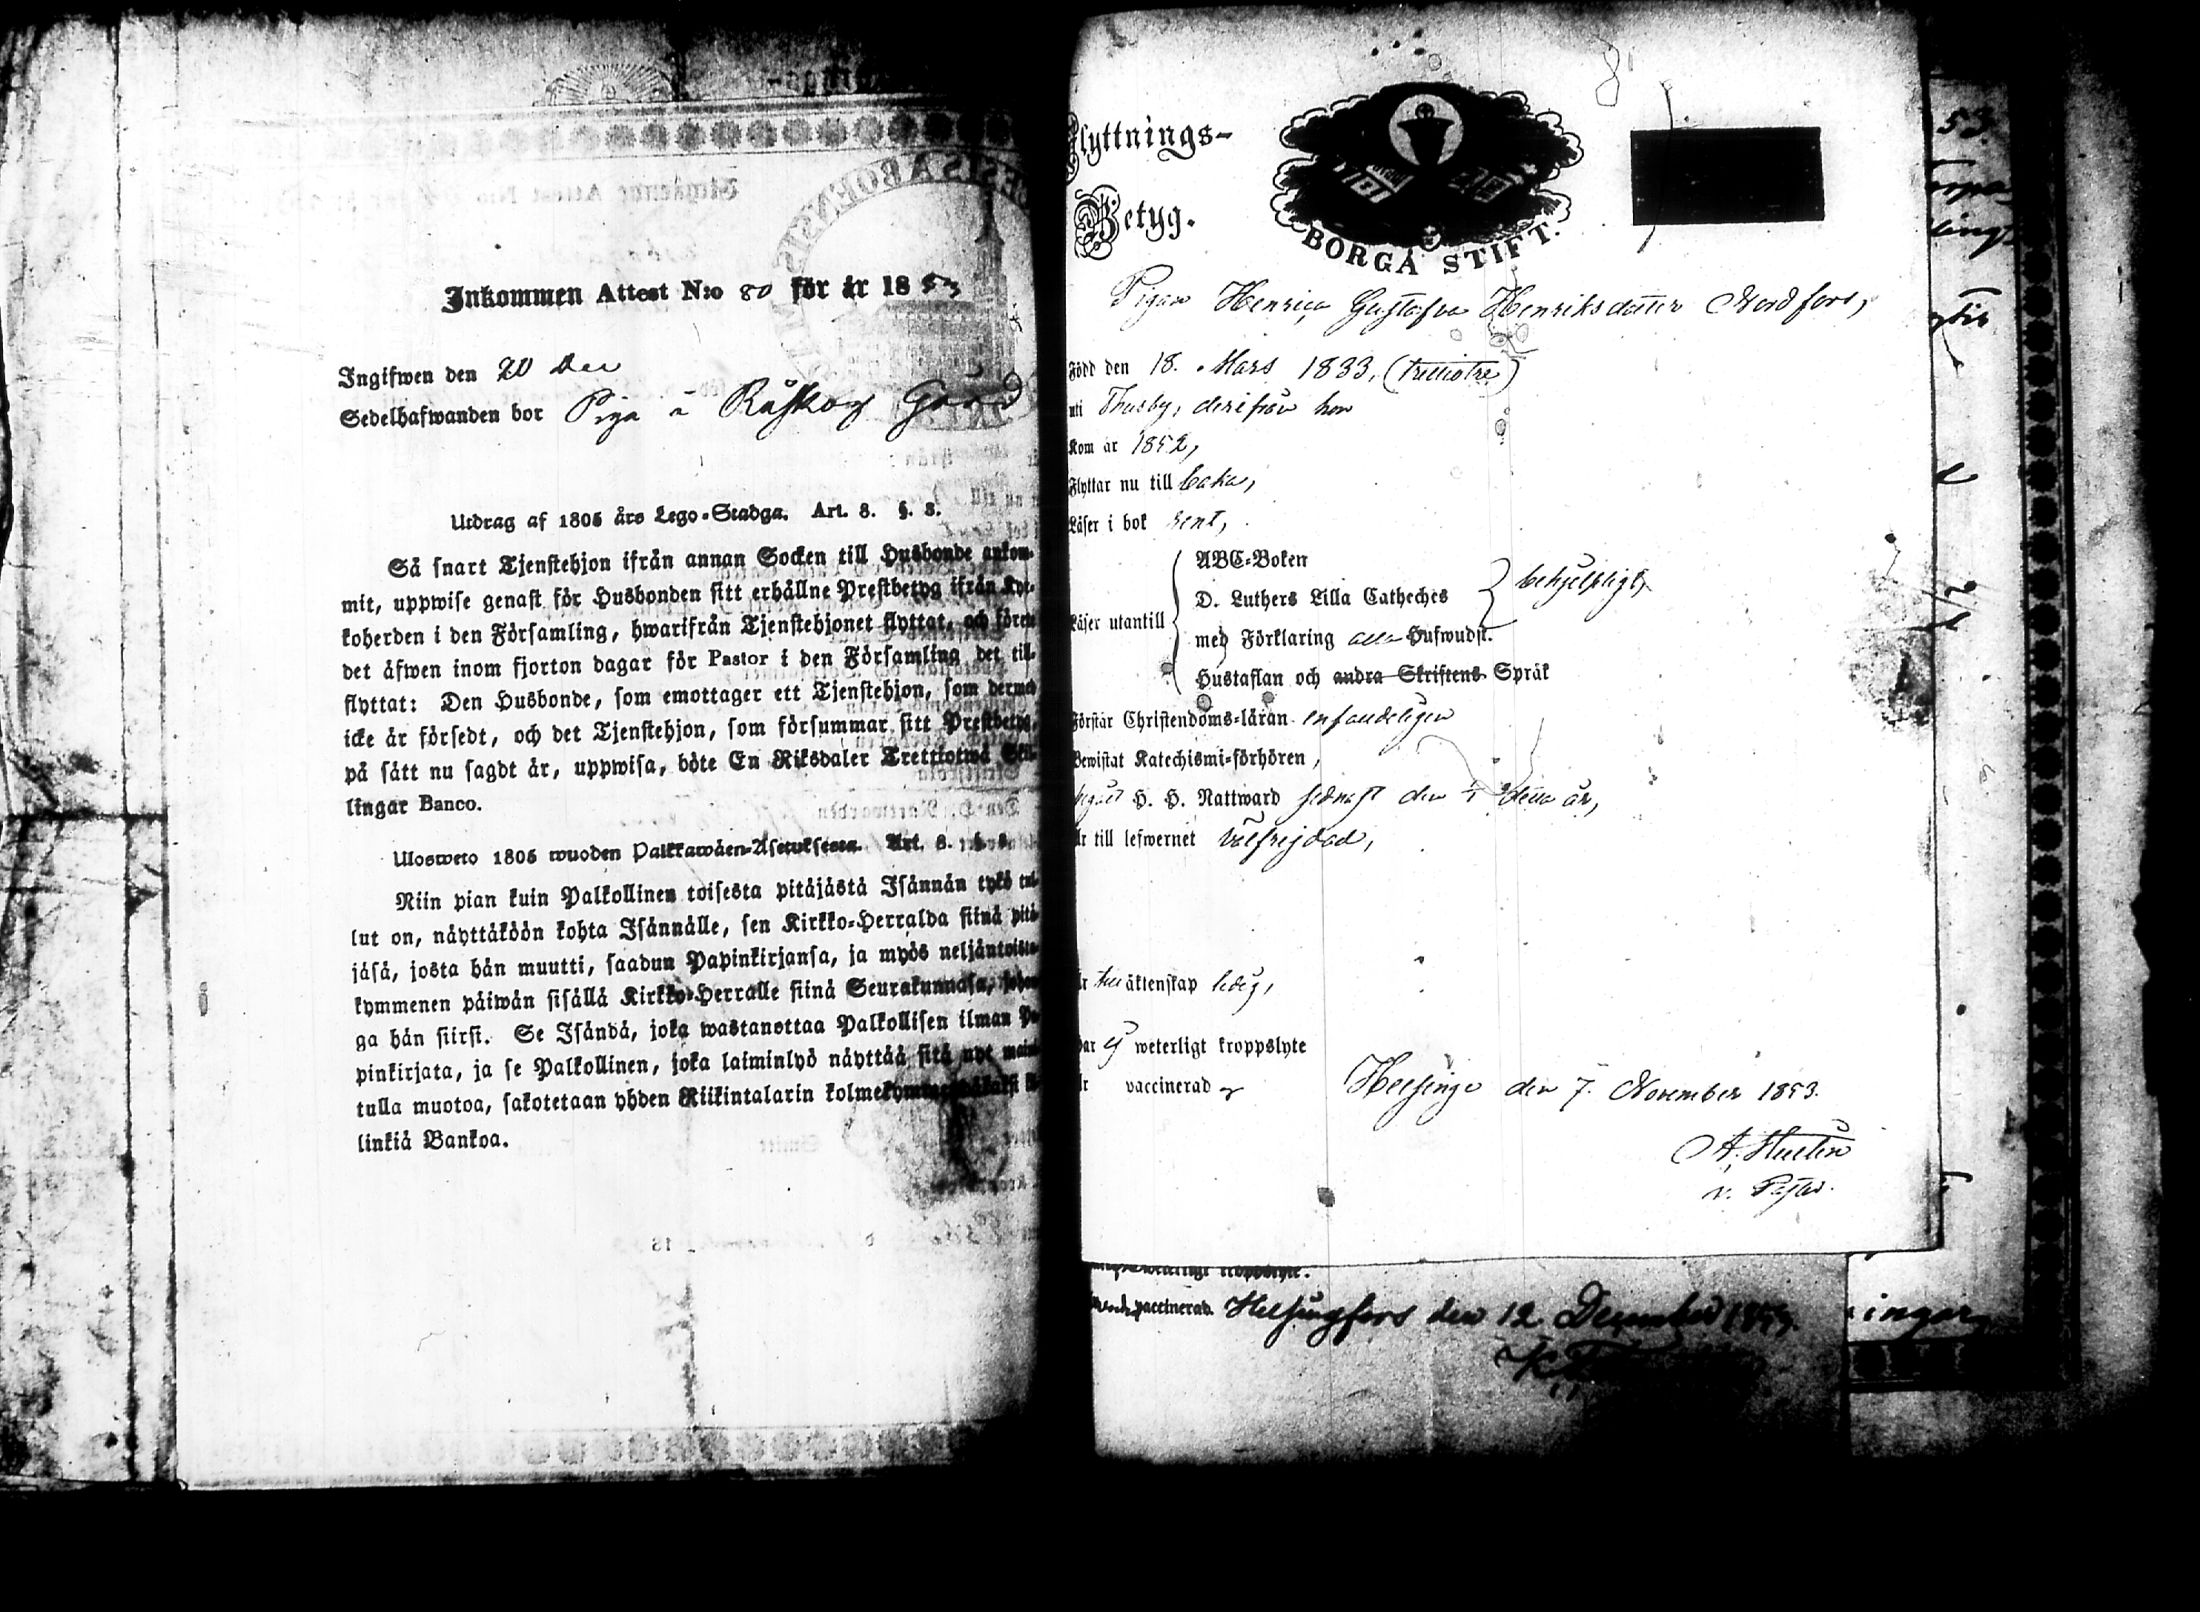 Inkommen Attest N:o 80 för år 1853
Ingifwen den 20 Dec
Sedelhafwanden bor Piga å Råskog Gård
Utdrag af 1805 års Lego-Stadga. Art. 8. §. 8.
Så snart Tjenstehjon ifrån annan Socken till Husbonde ankom-
mit, uppwise genast för Husbonden sitt erhållne Prestbetyg ifrån Kyr-
koherden i den Församling, hwarifrån Tjenstehjonet flyttat, och förete
det äfwen inom fjorton dagar för Pastor i den Församling det till-
flyttat: Den Husbonde, som emottager ett Tjenstehjon, som dermed
icke är försedt, och det Tjenstehjon, som försummar sitt Prestbetyg,
på sätt nu sagdt är, uppwisa, böte En Riksdaler Trettiotwå Skil-
lingar Banco.
Ulosweto 1805 wuoden Palkkawäen-Asetuksesta. Art. 8. §. 8.
Niin pian kuin Palkollinen toisesta pitäjästä Isännän tykö tul-
lut on, näyttäköön kohta Isännälle, sen Kirkko-Herralda siinä pitä-
jäsä, josta hän muutti, saadun Papinkirjansa, ja myös neljäntoista-
kymmenen päiwän sisällä Kirkko-Herralle siinä Seurakunnasa, johon-
ga hän siirsi. Se Isändä, joka wastanottaa Palkollisen ilman Pa-
pinkirjata, ja se Palkollinen, joka laiminlyö näyttää sitä nyt mainit-
tulla muotoa, sakotetaan yhden Riikintalarin kolmekymmentäkaksi kil-
linkiä Bankoa.
Flyttnings-
Betyg.
BORGÅ STIFT.
8
Pigan Henrica Gustafva Henriksdotter Nordfors,
Född den 18. Mars 1833, (trettiotre)
uti Thusby, derifrån hon
Kom år 1852,
Flyttar nu till baka,
Läser i bok rent,
ABC-Boken
D. Luthers Lilla Catheches
behjelpligt,
Läser utantill
med Förklaring alla Hufwudst.
Hustaflan och andra Skriftens Språk
Förstår Christendoms-läran enfaldeligen
Bewistat Katechismi-förhören,
begått H. H. Nattward sednast den detta år,
Är till lefwernet välfrejdad,
Är till äktenskap ledig,
Har ej weterligt kroppslyte
Är vaccinerad
Helsinge den 7. November 1853.
v. Pastor.
vaccinerad. Helsingfors den 12 December 1853.
53.